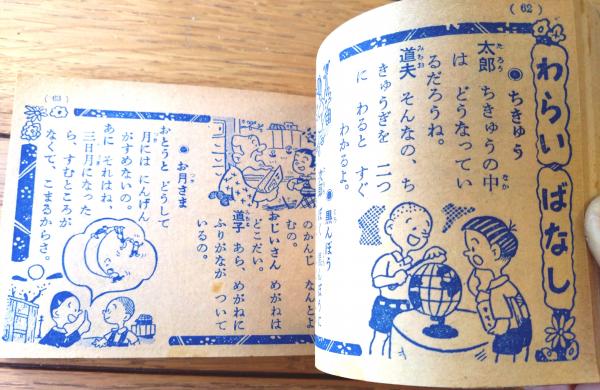 (62)
わらいばなし
● ちきゅう
太郎 ちきゅうの中
は どうなってい
るだろうね。
道夫 そんなの、ち
きゅうぎを 二つ
に わると すぐ
わかるよ。
● 黒んぼう
のかんじ なんとよ
むの。
おじいさん めがねは
どこだい。
道子 あら、めがねに
ふりがなが ついて
いるの。
● お月さま
おとうと どうして
月には にんげん
がすめないの。
あに それはね、
三日月になった
ら、すむところが
なくて、こまるからさ。